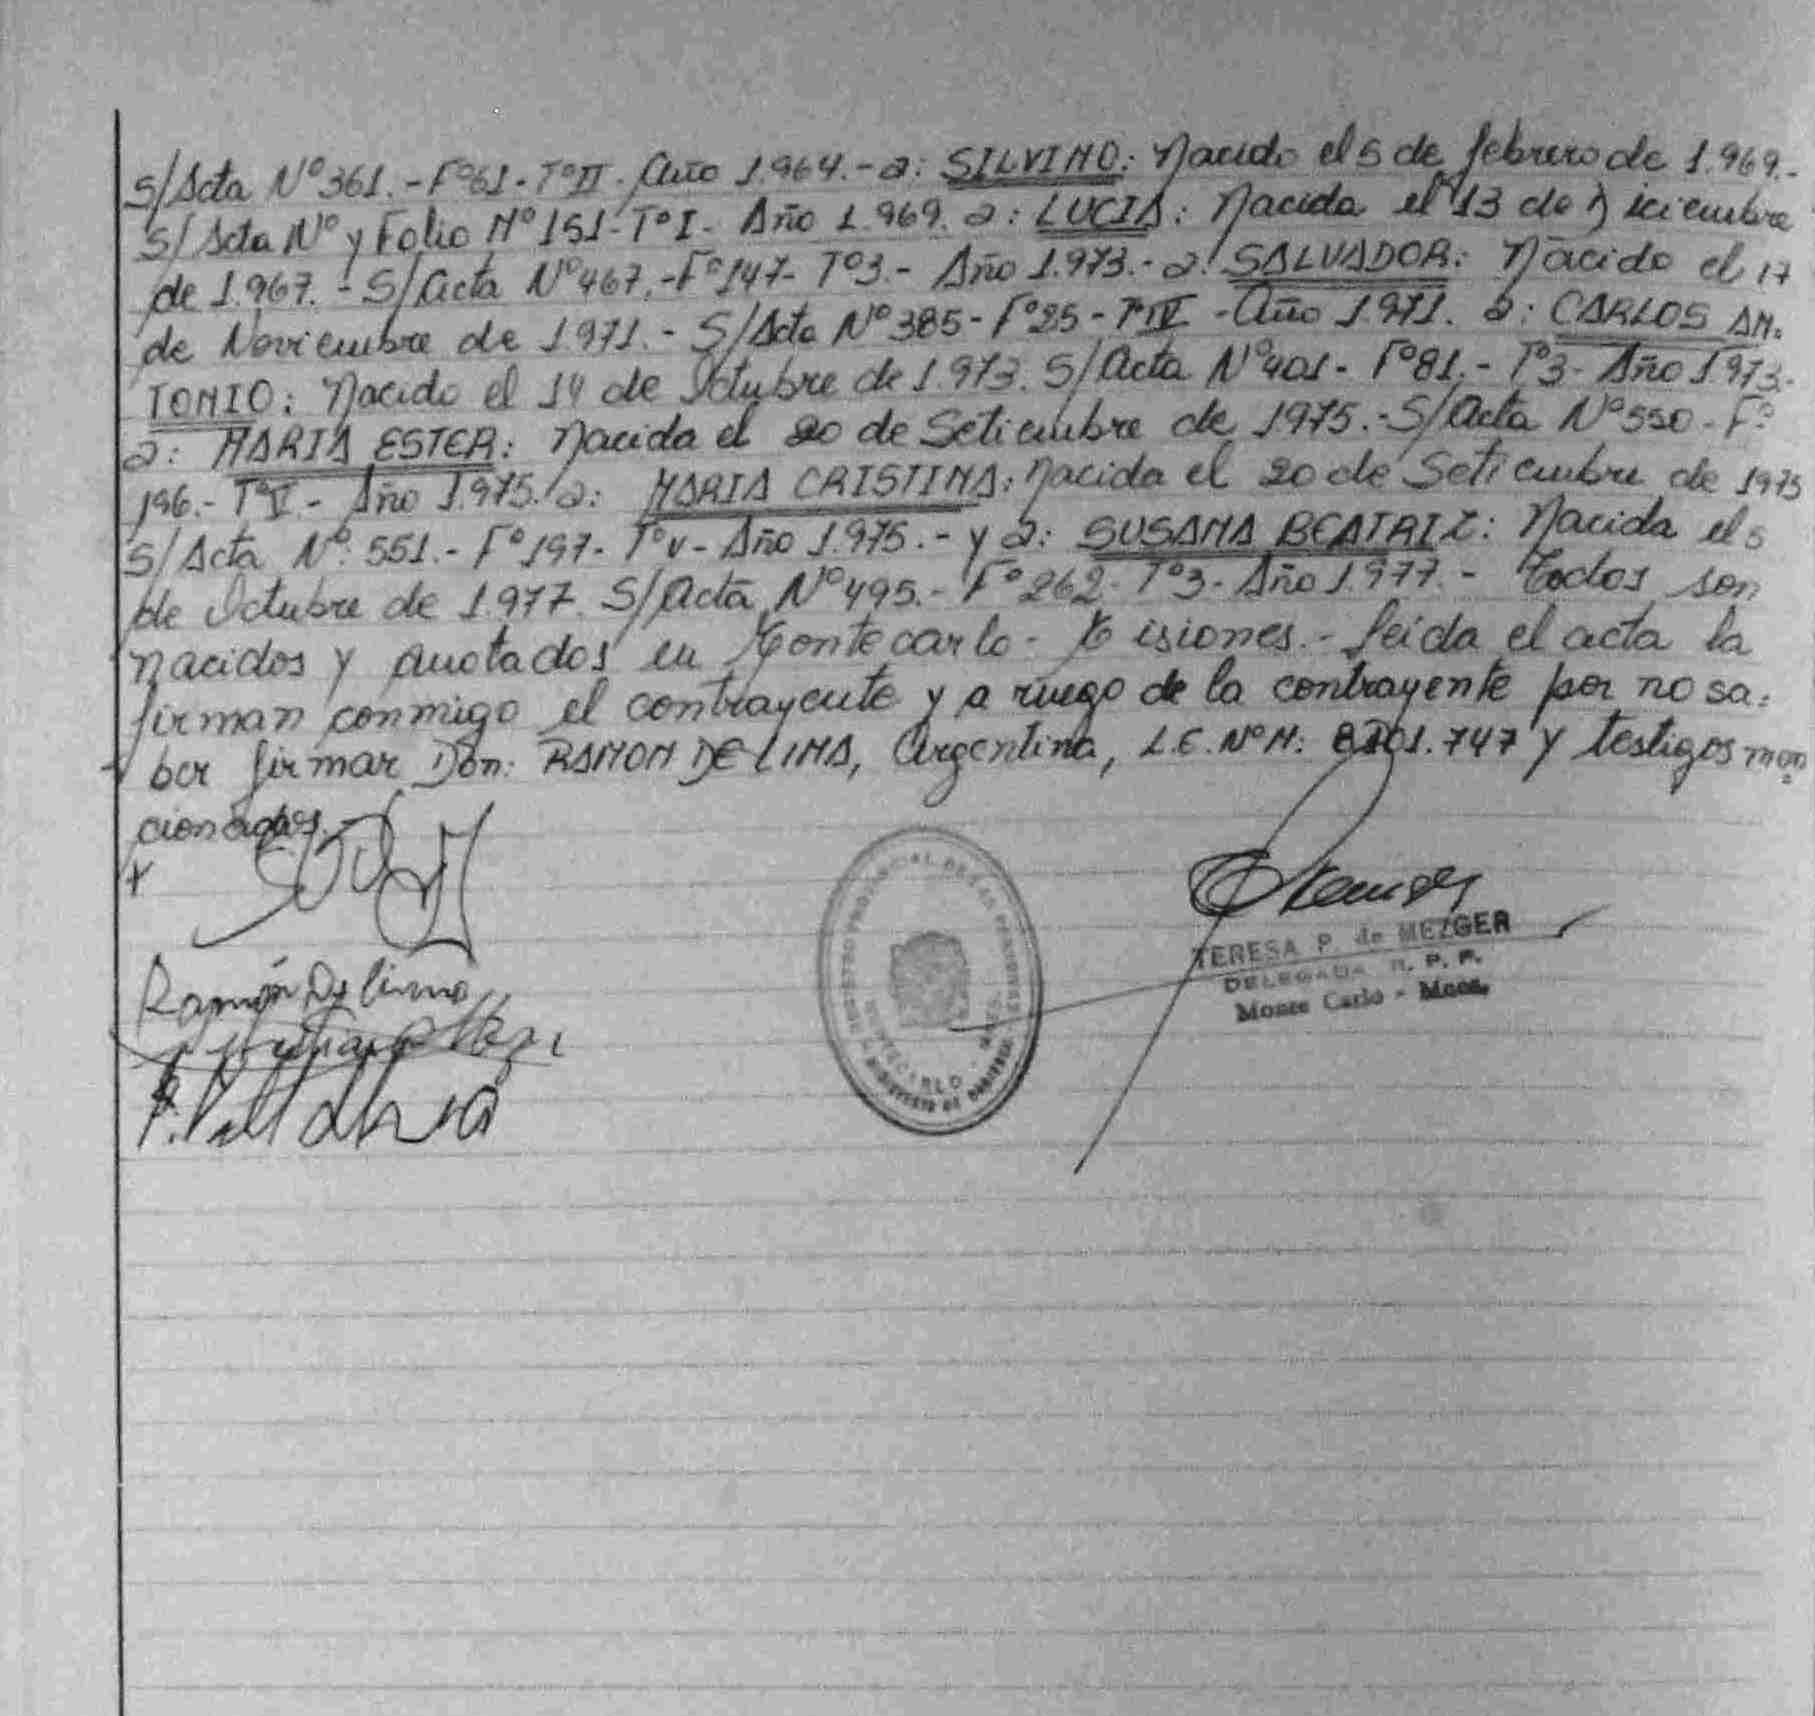 S/Acta Nº361.-Fº61-TºII. Año 1.964.-a: SILVINO: Nacido el 5 de febrero de 1.969.-
S/Acta Nº y Folio Nº151-TºI- Año 1.969. a: LUCIA: Nacida el 13 de Diciembre
de 1.967.-S/Acta Nº467.-Fº147-Tº3.- Año 1.973.-a: SALVADOR: Nacido el 17
de Noviembre de 1971.- S/Acta Nº385-Fº25-TºIV-Año 1.971. a: CARLOS AN=
TONIO: Nacido el 14 de Octubre de 1.973. S/Acta Nº401-Fº81.-Tº3-Año 1973.
a: MARIA ESTER: Nacida el 20 de Setiembre de 1975.-S/Acta Nº550-Fº
196.-TºV.- Año 1.975. a: MARIA CRISTINA: Nacida el 20 de Setiembre de 1975
S/Acta Nº: 551.-Fº197-TºV-Año 1.975.- y a: SUSANA BEATRIZ: Nacida el 5
de Octubre de 1.977. S/Acta Nº495.-Fº262-Tº3-Año 1.977.- Todos son
nacidos y anotados en Montecarlo-Misiones.- Leida el acta la
firman conmigo el contrayente y a ruego de la contrayente por no sa=
ber firmar Don: RAMON DE LIMA, Argentina, L.E.NºM: 8201.747 y testigos men
cionados.-
x
Ramón De lima
TERESA P. de MEZGER
DELEGADA R. P. P.
Monte Carlo - Mnes.
REGISTRO PROVINCIAL DE LAS PERSONAS
MONTECARLO - MNES.